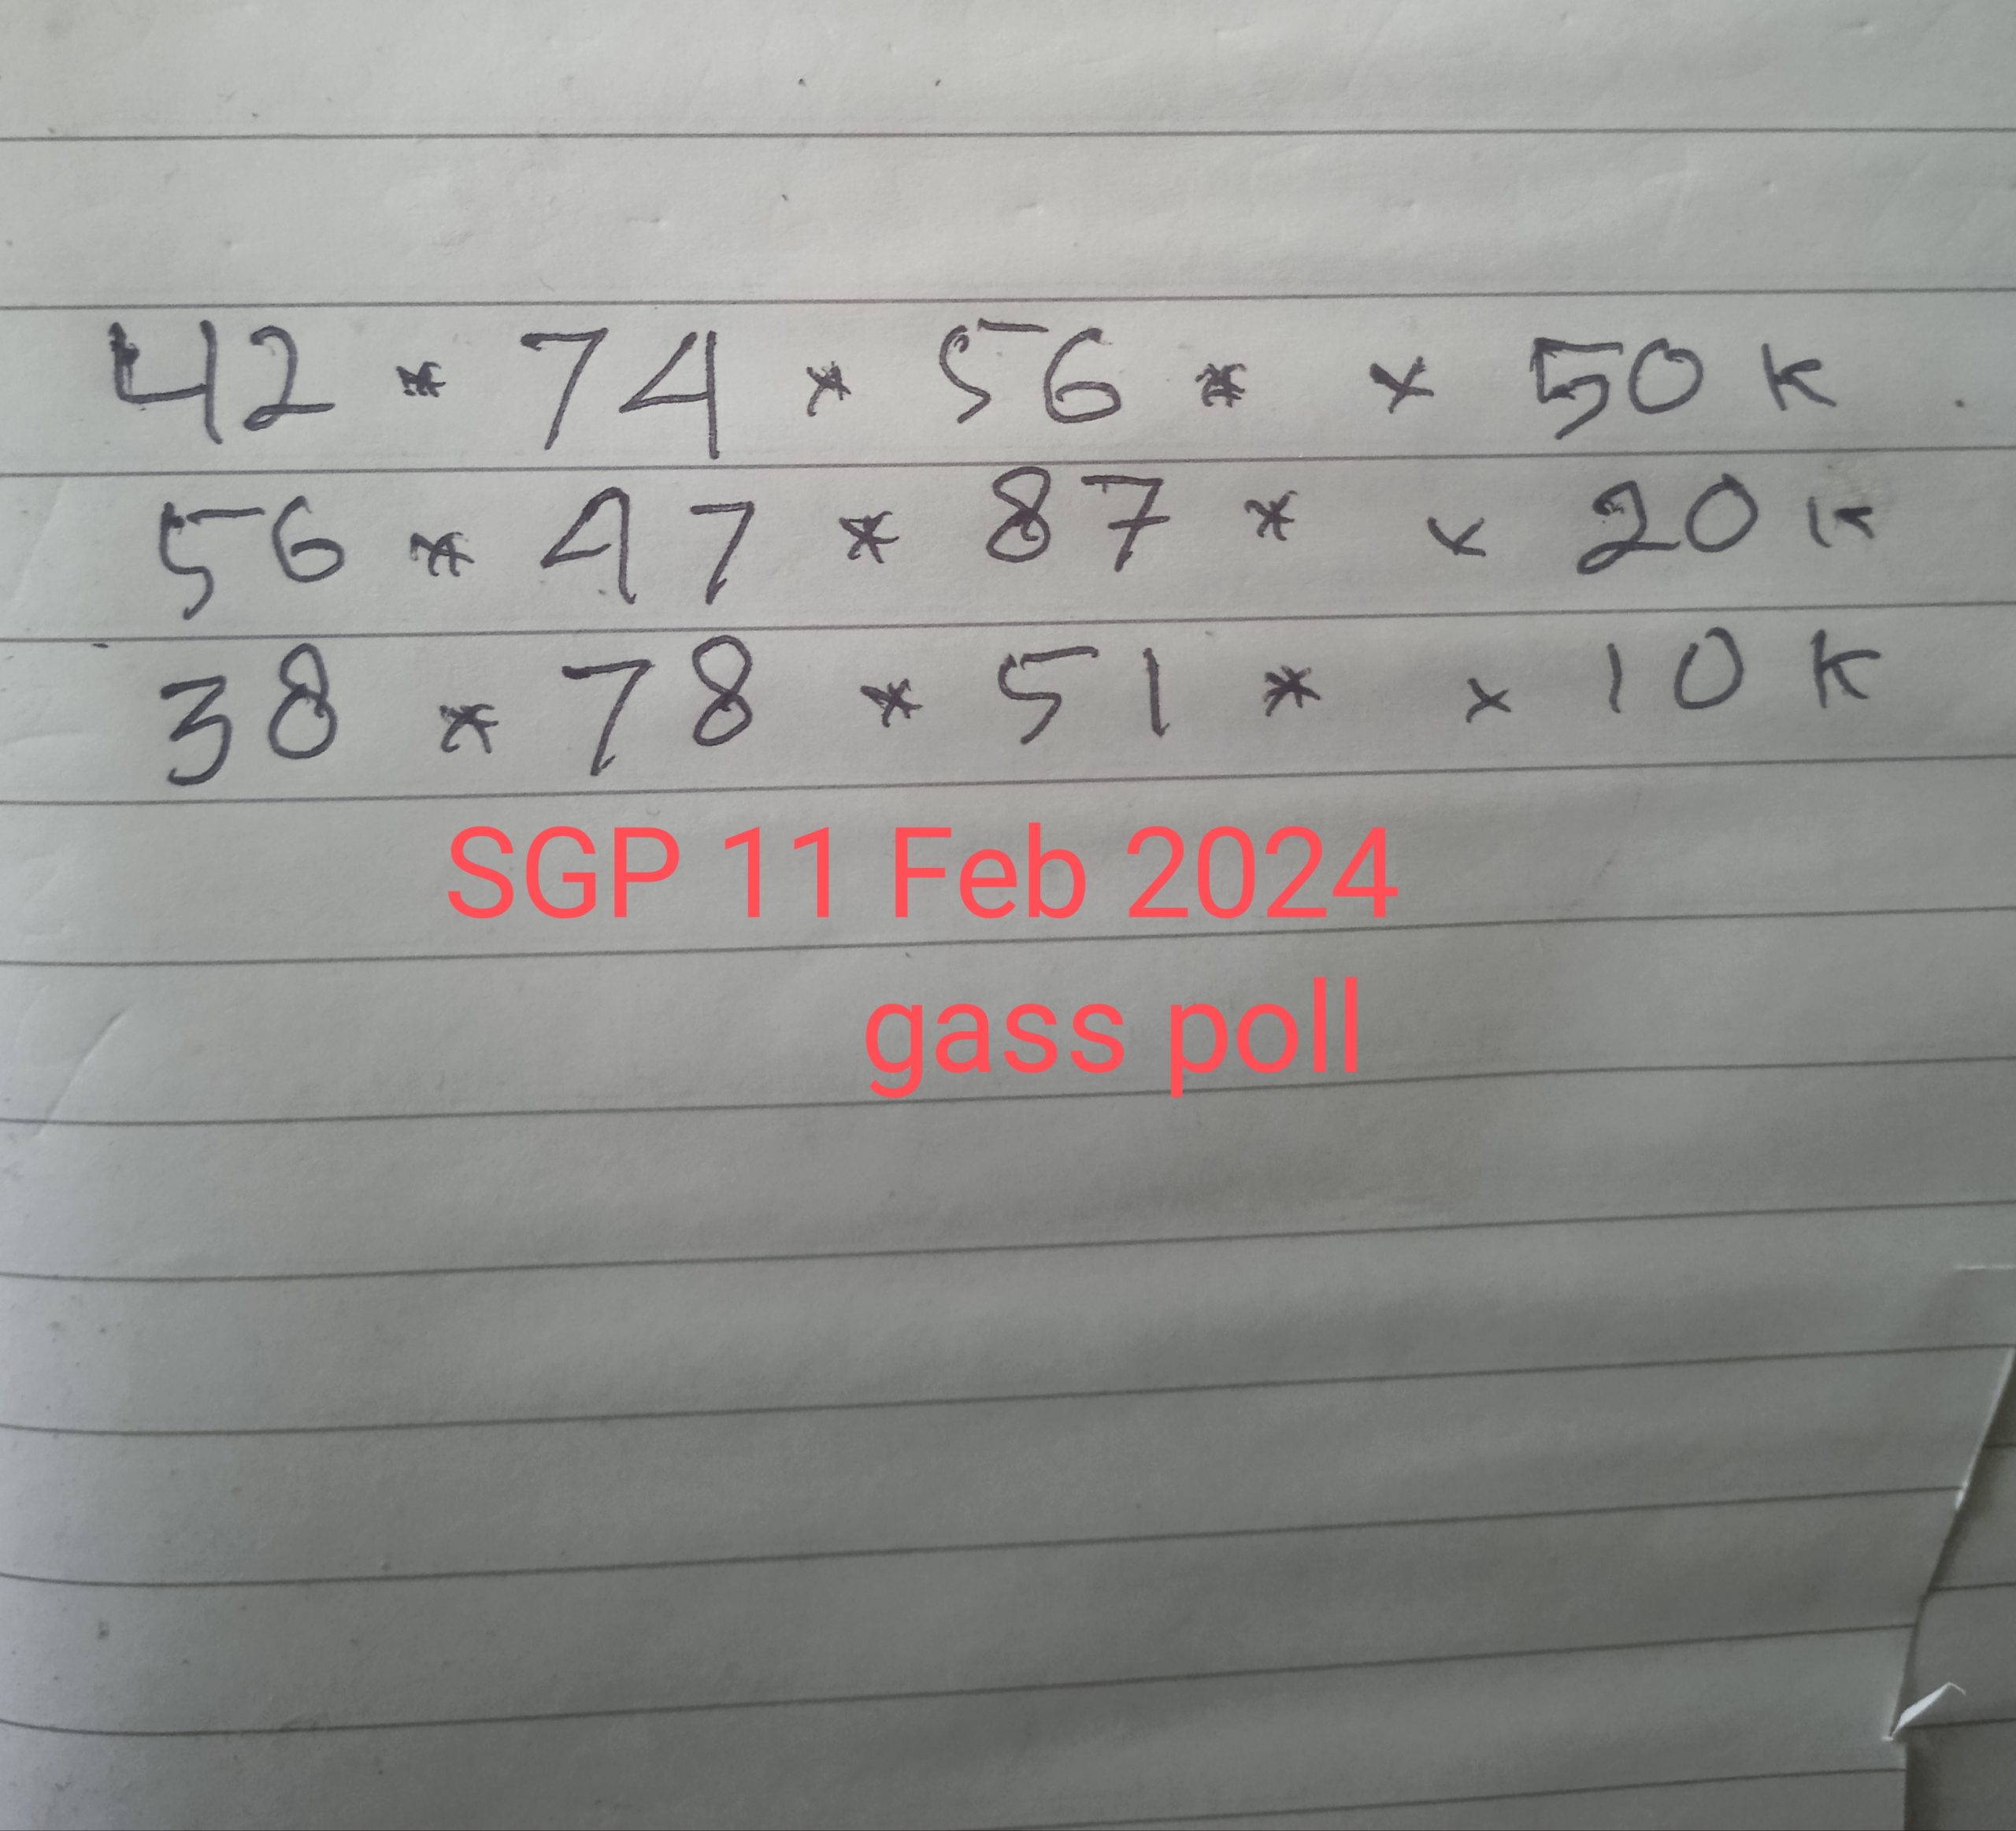 42 * 74 * 56 * x 50 k
56 * 47 * 87 * x 20 k
38 * 78 * 51 * x 10 k
SGP 11 Feb 2024
gass poll